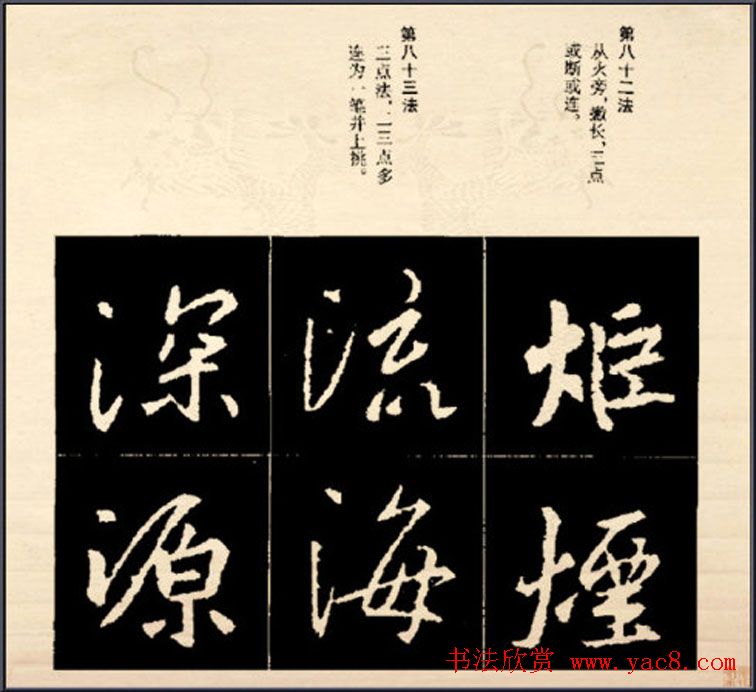 第八十二法
从火旁，撇长，三点
或断或连。
第八十三法
三点法，二三点多
连为一笔并上挑。
炬
煙
流
海
深
源
书法欣赏 www.yac8.com